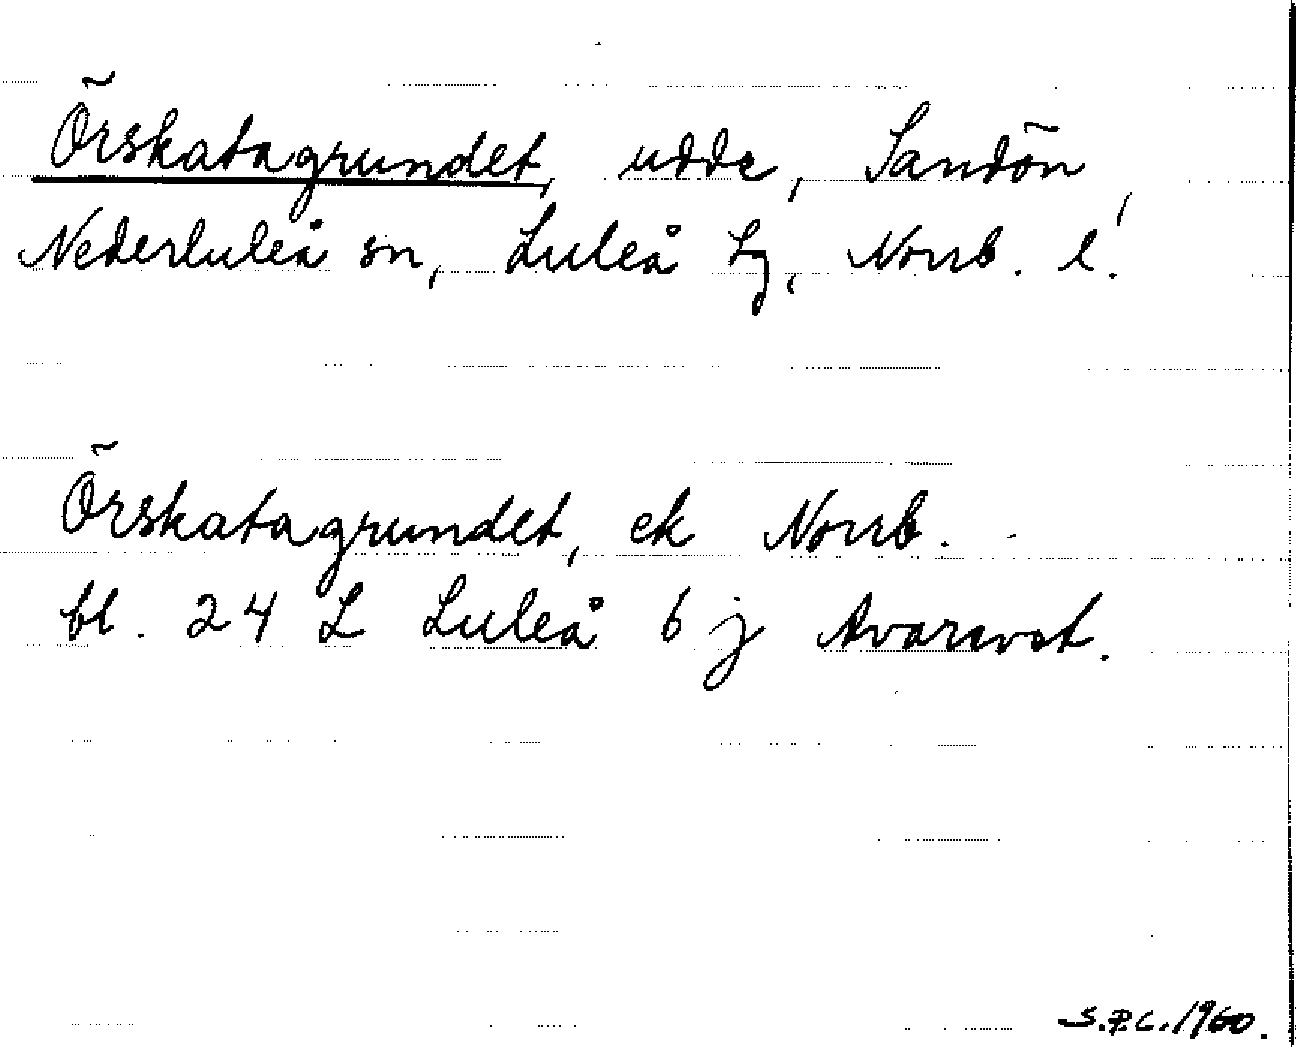 Örskatagrundet, udde, Sandön,
Nederluleå sn, Luleå tg, Norrb. l.
Örskatagrundet, ek Norrb.
bl. 24 L Luleå 6 j Avaravat.
S.P.C. 1960.